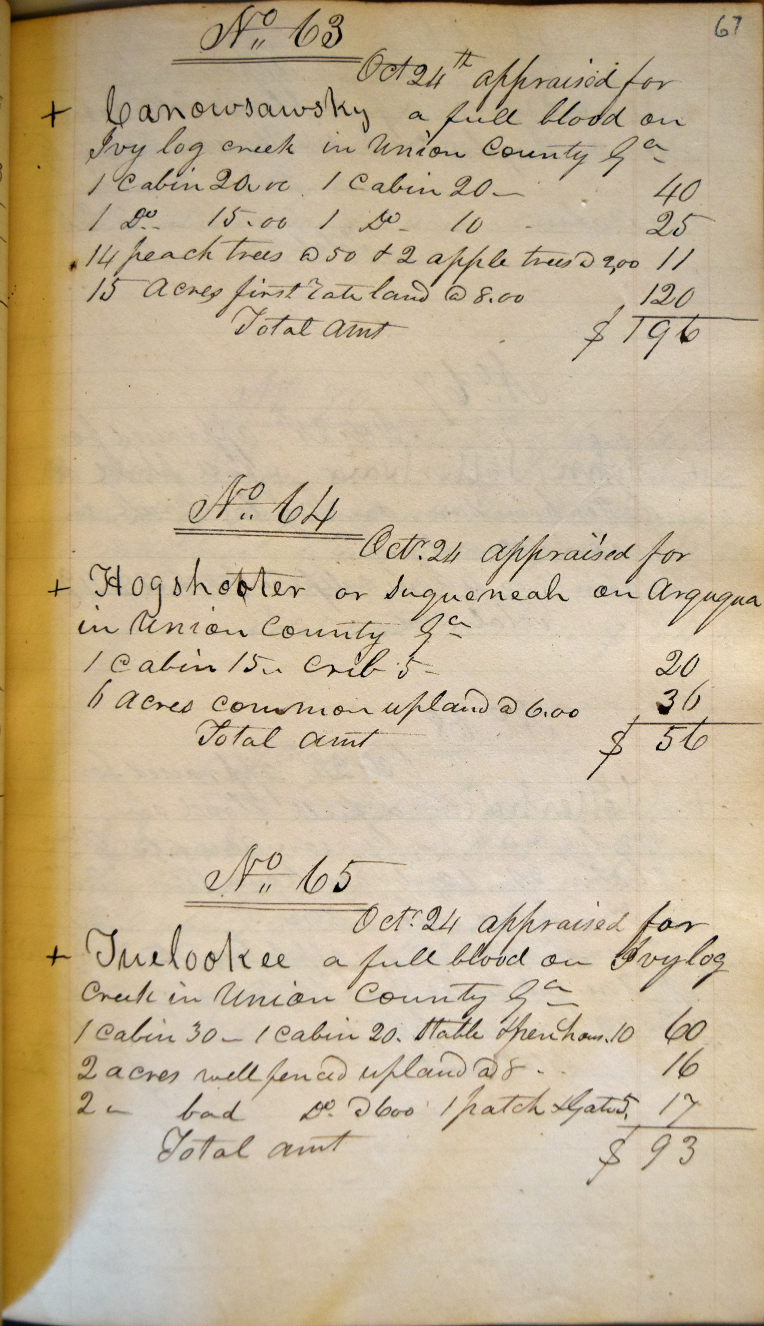 67
No 63
Oct 24th appraised for
+ Canowsawsky a full blood on
Ivy log creek in Union County Ga
1 Cabin 20.00 1 Cabin 20 - 40
1 Do - 15.00 1 Do - 10 - 25
14 peach trees @ 50 & 2 apple trees @ 2,00 11
15 Acres first rate land @ 8.00 120
Total amt $ 196
No 64
Octr. 24 appraised for
+ Hogshooter or Suqueneah on Arququa
in Union County Ga
1 Cabin 15 Crib 5 - 20
6 Acres common upland @ 6.00 36
Total amt $ 56
No 65
Octr. 24 appraised for
+ Tuelookee a full blood on Ivylog
Creek in Union County Ga
1 Cabin 30 - 1 cabin 20. Stable & hen hous. 10 60
2 acres well fenced upland @ 8 - - 16
2 " bad Do @ 600 1 patch & Gate 5, 17
Total amt $ 93